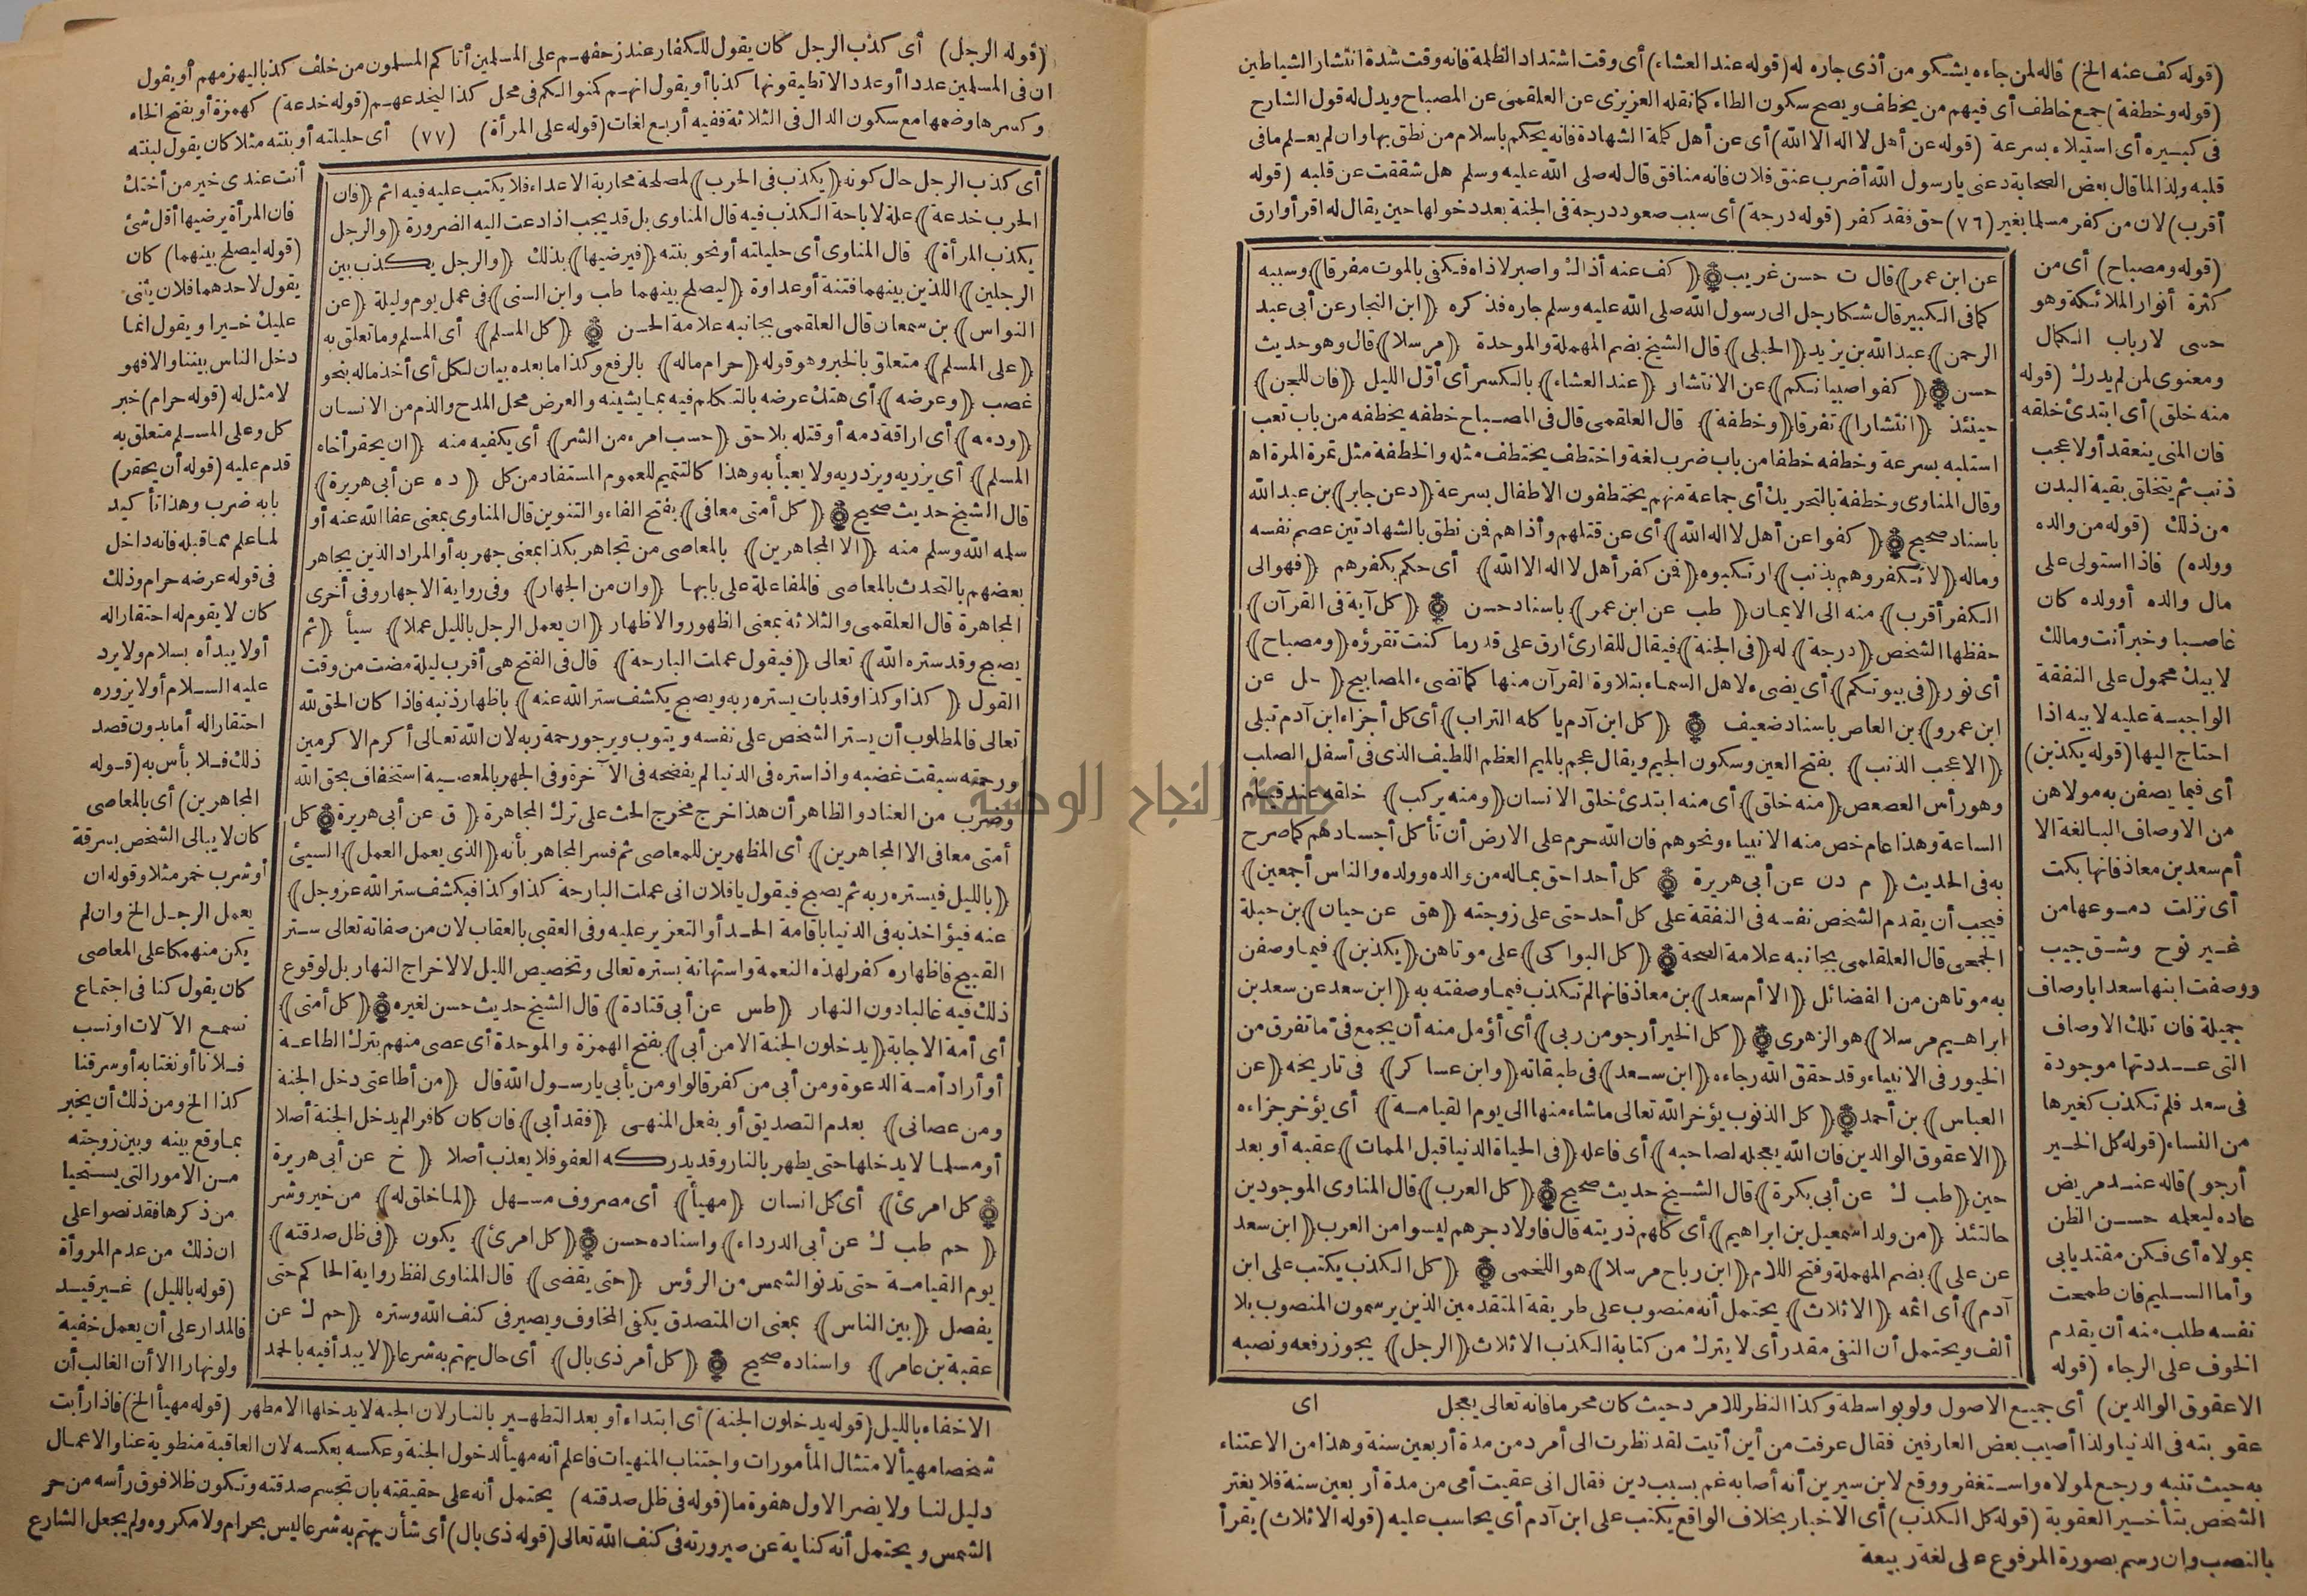 (قوله كف عنه الخ) قاله لمن جاءه يشكو من أذى جاره له (قوله عند العشاء) أى وقت اشتداد الظلمة فانه وقت شدة انتشار الشياطين
(قوله وخطفة) جمع خاطف أى فيهم من يخطف ويصح سكون الطاء كما نقله العزيزى عن العلقمى عن المصباح ويدل له قول الشارح
فى كبيره أى استيلاء بسرعة (قوله عن أهل لا اله الا الله) أى عن أهل كلمة الشهادة فانه يحكم باسلام من نطق بها وان لم يعلم مافى
قلبه ولذا لما قال بعض الصحابة دعنى يارسول الله أضرب عنق فلان فانه منافق قال له صلى الله عليه وسلم هل شققت عن قلبه (قوله
أقرب) لان من كفر مسلما بغير (٧٦) حق فقد كفر (قوله درجة) أى سبب صعود درجة فى الجنة بعد دخولها حين يقال له اقرأ وارق
عن ابن عمر) قال ت حسن غريب (كف عنه أذاك واصبر لاذاه فكفى بالموت مفرقا) وسببه
كما فى الكبير قال شكا رجل الى رسول الله صلى الله عليه وسلم جاره فذكره (ابن النجار عن أبى عبد
الرحمن) عبد الله بن يزيد (الحبلى) قال الشيخ بضم المهملة والموحدة (مرسلا) قال وهو حديث
حسن (كفوا صبيانكم) عن الانتشار (عند العشاء) بالكسر أى أوّل الليل (فان للجن)
حينئذ (انتشارا) تفرقا (وخطفة) قال العلقمى قال فى المصباح خطفه يخطفه من باب تعب
استلبه بسرعة وخطفه خطفا من باب ضرب لغة واختطف يختطف مثله والخطفة مثل تمرة المرة اه
وقال المناوى وخطفة بالتحريك أى جماعة منهم يختطفون الاطفال بسرعة (د عن جابر) بن عبد الله
باسناد صحيح (كفوا عن أهل لا اله الله) أى عن قتلهم وأذاهم فمن نطق بالشهادتين عصم نفسه
وماله (لا تكفروهم بذنب) ارتكبوه (فمن كفر أهل لا اله الا الله) أى حكم بكفرهم (فهو الى
الكفر أقرب) منه الى الايمان (طب عن ابن عمر) باسناد حسن (كل آية فى القرآن)
حفظها الشخص (درجة) له (فى الجنة) فيقال للقارئ ارق على قدر ما كنت تقرؤه (ومصباح)
أى نور (فى بيوتكم) أى يضىء لاهل السماء بتلاوة القرآن منها كما تضىء المصابيح (حل عن
ابن عمرو) بن العاص باسناد ضعيف (كل ابن آدم يأكله التراب) أى كل أجزاء ابن آدم تبلى
(الا عجب الذنب) بفتح العين وسكون الجيم ويقال عجم بالميم العظم اللطيف الذى فى أسفل الصلب
وهو رأس العصعص (منه خلق) أى منه ابتدئ خلق الانسان (ومنه يركب) خلقه عند قيام
الساعة وهذا عام خص منه الانبياء ونحوهم فان الله حرم على الارض أن تأكل أجسادهم كما صرح
به فى الحديث (م د ن عن أبى هريرة كل أحد احق بماله من والده وولده والناس أجمعين)
فيجب أن يقدم الشخص نفسه فى النفقة على كل أحد حتى على زوجته (هق عن حبان) بن جبلة
الجمحى قال العلقلمى بجانبه علامة الصحة (كل البواكى) على موتاهن (يكذبن) فيما وصفن
به موتاهن من الفضائل (الا أم سعد) بن معاذ فانها لم تكذب فيما وصفته به (ابن سعد عن سعد بن
ابراهيم مرسلا) هو الزهرى (كل الخير أرجو من ربى) أى أؤمل منه أن يجمع فىّ ما تفرق من
الخيور فى الانبياء وقد حقق الله رجاءه (ابن سعد) فى طبقاته (وابن عساكر) فى تاريخه (عن
العباس) بن أحمد (كل الذنوب يؤخر الله تعالى ما شاء منها الى يوم القيامة) أى يؤخر جزاءه
(الا عقوق الوالدين فان الله يعجله لصاحبه) أى فاعله (فى الحياة الدنيا قبل الممات) عقبه أو بعد
حين (طب ك عن أبى بكرة) قال الشيخ حديث صحيح (كل العرب) قال المناوى الموجودين
حالتئذ (من ولد اسمعيل بن ابراهيم) أى كلهم ذريته قال فاولاد جرهم ليسوا من العرب (ابن سعد
عن على) بضم المهملة وفتح اللام (ابن رباح مرسلا) هو اللخمى (كل الكذب يكتب على ابن
آدم) أى اثمه (الا ثلاث) يحتمل أنه منصوب على طريقة المتقدمين الذين يرسمون المنصوب بلا
ألف ويحتمل أن النفى مقدر أى لا يترك من كتابة الكذب الا ثلاث (الرجل) يجوز رفعه ونصبه
(قوله ومصباح) أى من
كثرة أنوار الملائكة وهو
حسى لارباب الكمال
ومعنوى لمن لم يدرك (قوله
منه خلق) أى ابتدئ خلقه
فان المنى ينعقد أولا عجب
ذنب ثم يتخلق بقية البدن
من ذلك (قوله من والده
وولده) فاذا استولى على
مال والده أو ولده كان
غاصبا وخبر أنت ومالك
لابيك محمول على النفقة
الواجبة عليه لابيه اذا
احتاج اليها (قوله يكذبن)
أى فيما يصفن به مولاهن
من الاوصاف البالغة الا
أم سعد بن معاذ فانها بكت
أى نزلت دموعها من
غير نوح وشق جيب
ووصفت ابنها سعدا باوصاف
جميلة فان تلك الاوصاف
التى عددتها موجودة
فى سعد فلم تكذب كغيرها
من النساء (قوله كل الخير
أرجو) قاله عند مريض
عاده ليعلمه حسن الظن
بمولاه أى فكن مقتديا بى
وأما السليم فان طمحت
نفسه طلب منه أن يقدم
الخوف على الرجاء (قوله
الا عقوق الوالدين) أى جميع الاصول ولو بواسطة وكذا النظر للامرد حيث كان محرما فانه تعالى يعجل اى
عقوبته فى الدنيا ولذا أصيب بعض العارفين فقال عرفت من أين أتيت لقد نظرت الى أمرد من مدة أربعين سنة وهذا من الاعتناء
به حيث تنبه ورجع لمولاه واستغفر ووقع لابن سيرين أنه أصابه غم بسبب دين فقال انى عقبت أمى من مدة أربعين سنة فلا يغتر
الشخص بتأخير العقوبة (قوله كل الكذب) أى الاخبار بخلاف الواقع يكتب على ابن آدم أى يحاسب عليه (قوله الا ثلاث) يقرأ
بالنصب وان رسم بصورة المرفوع على لغة ربيعة
(قوله الرجل) أى كذب الرجل كان يقول للكفار عند زحفهم على المسلمين أتاكم المسلمون من خلف كذبا ليهزمهم أو يقول
ان فى المسلمين عددا أو عددا لا تطيقونها كذبا أو يقول انهم كمنوا لكم فى محل كذا ليخدعهم (قوله خدعة) كهمزة أو بفتح الخاء
وكسرها وضمها مع سكون الدال فى الثلاثة ففيه أربع لغات (قوله على المرأة) (٧٧) أى حليلته أو بنته مثلا كان يقول لبنته
أى كذب الرجل حال كونه (يكذب فى الحرب) لمصلحة محاربة الاعداء فلا يكتب عليه فيه اثم (فان
الحرب خدعة) علة لاباحة الكذب فيه قال المناوى بل قد يجب اذا دعت اليه الضرورة (والرجل
يكذب المرأة) قال المناوى أى حليلته أو نحو بنته (فيرضيها) بذلك (والرجل يكذب بين
الرجلين) اللذين بينهما فتنة أو عداوة (ليصلح بينهما طب وابن السنى) فى عمل يوم وليلة (عن
النواس) بن سمعان قال العلقمى بجانبه علامة الحسن (كل المسلم) أى المسلم وما تعلق به
(على المسلم) متعلق بالخبر وهو قوله (حرام ماله) بالرفع وكذا ما بعده بيان لكل أى أخذ ماله بنحو
غصب (وعرضه) أى هتك عرضه بالتكلم فيه بما يشينه والعرض محل المدح والذم من الانسان
(ودمه) أى اراقة دمه أو قتله بلا حق (حسب امرء من الشر) أى يكفيه منه (ان يحقر أخاه
المسلم) أى يزريه ويزدريه ولا يعبأ به وهذا كالتتميم للعموم المستفاد من كل (د ه عن أبى هريرة)
قال الشيخ حديث صحيح (كل أمتى معافى) بفتح الفاء والتنوين قال المناوى بمعنى عفا الله عنه أو
سلمه الله وسلم منه (الا المجاهرين) بالمعاصى من تجاهر بكذا بمعنى جهر به أو المراد الذين يجاهر
بعضهم بالتحدث بالمعاصى فالمفاعلة على بابها (وان من الجهار) وفى رواية الاجهار وفى أخرى
المجاهرة قال العلقمى والثلاثة بمعنى الظهور والاظهار (ان يعمل الرجل بالليل عملا) سيأ (ثم
يصبح وقد ستره الله) تعالى (فيقول عملت البارحة) قال فى الفتح هى أقرب ليلة مضت من وقت
القول (كذا وكذا وقد بات يستره ربه ويصبح يكشف ستر الله عنه) باظهار ذنبه فاذا كان الحق لله
تعالى فالمطلوب أن يستر الشخص على نفسه ويتوب ويرجو رحمة ربه لان الله تعالى أكرم الاكرمين
ورحمته سبقت غضبه واذا ستره فى الدنيا لم يفضحه فى الآخرة وفى الجهر بالمعصية استخفاف بحق الله
وضرب من العناد والظاهر أن هذا خرج مخرج الحث على ترك المجاهرة (ق عن أبى هريرة كل
أمتى معافى الا المجاهرين) أى المظهرين للمعاصى ثم فسر المجاهر بأنه (الذى يعمل العمل) السيئ
(بالليل فيستره ربه ثم يصبح فيقول يا فلان انى عملت البارحة كذا وكذا فيكشف ستر الله عز وجل)
عنه فيؤاخذ به فى الدنيا باقامة الحد أو التعزير عليه وفى العقبى بالعقاب لان من صفاته تعالى ستر
القبيح فاظهاره كفر لهذه النعمة واستهانة بستره تعالى وتخصيص الليل لا لاخراج النهار بل لوقوع
ذلك فيه غالبا دون النهار (طس عن أبى قتادة) قال الشيخ حديث حسن لغيره (كل أمتى)
أى أمة الاجابة (يدخلون الجنة الا من أبى) بفتح الهمزة والموحدة أى عصى منهم بترك الطاعة
أو أراد أمة الدعوة ومن أبى من كفر قالوا ومن يأبى يارسول الله قال (من أطاعنى دخل الجنة
ومن عصانى) بعدم التصديق أو بفعل المنهى (فقد أبى) فان كان كافرا لم يدخل الجنة أصلا
أو مسلما لا يدخلها حتى يطهر بالنار وقد يدركه العفو فلا يعذب أصلا (خ عن أبى هريرة
كل امرئ) أى كل انسان (مهيأ) أى مصروف مسهل (لما خلق له) من خير وشر
(حم طب ك عن أبى الدرداء) واسناده حسن (كل امرئ) يكون (فى ظل صدقته)
يوم القيامة حتى تدنو الشمس من الرؤس (حتى يقضى) قال المناوى لفظ رواية الحاكم حتى
يفصل (بين الناس) بمعنى ان المتصدق يكفى المخاوف ويصير فى كنف الله وستره (حم ك عن
عقبة بن عامر) واسناده صحيح (كل أمر ذى بال) أى حال يهتم به شرعا (لا يبدأ فيه بالحمد
أنت عندى خير من أختك
فان المرأة يرضيها أقل شئ
(قوله ليصلح بينهما) كان
يقول لاحدهما فلان يثنى
عليك خيرا ويقول انما
دخل الناس بيننا والا فهو
لا مثل له (قوله حرام) خبر
كل وعلى المسلم متعلق به
قدم عليه (قوله أن يحقر)
بابه ضرب وهذا تأكيد
لما علم مما قبله فانه داخل
فى قوله عرضه حرام وذلك
كان لا يقوم له احتقارا له
أو لا يبدأه بسلام ولا يرد
عليه السلام أو لا يزوره
احتقارا له أما بدون قصد
ذلك فلا بأس به (قوله
المجاهرين) أى بالمعاصى
كان لا يبالى الشخص بسرقة
أو شرب خمر مثلا وقوله ان
يعمل الرجل الخ وان لم
يكن منهمكا على المعاصى
كان يقول كنا فى اجتماع
نسمع الآلات اونسب
فلانا أو نغتابه أو سرقنا
كذا الخ ومن ذلك أن يخبر
بما وقع بينه وبين زوجته
من الامور التى يستحيا
من ذكرها فقد نصوا على
ان ذلك من عدم المروأة
(قوله بالليل) غير قيد
فالمدار على أن يعمل خفية
ولو نهارا الا أن الغالب أن
الاخفاء بالليل (قوله يدخلون الجنة) أى ابتداء أو بعد التطهير بالنار لان الجنة لا يدخلها الا مطهر (قوله مهيأ الخ) فاذا رأيت
شخصا مهيأ لامتثال المأمورات واجتناب المنهيات فاعلم أنه مهيأ لدخول الجنة وعكسه بعكسه لان العاقبة منطوية عنا والاعمال
دليل لنا ولا يضر الاول هفوة ما (قوله فى ظل صدقته) يحتمل أنه على حقيقته بان تجسم صدقته وتكون ظلا فوق رأسه من حر
الشمس ويحتمل أنه كناية عن صيرورته فى كنف الله تعالى (قوله ذى بال) أى شأن يهتم به شرعا ليس بحرام ولا مكروه ولم يجعل الشارع
جامعة النجاح الوطنية